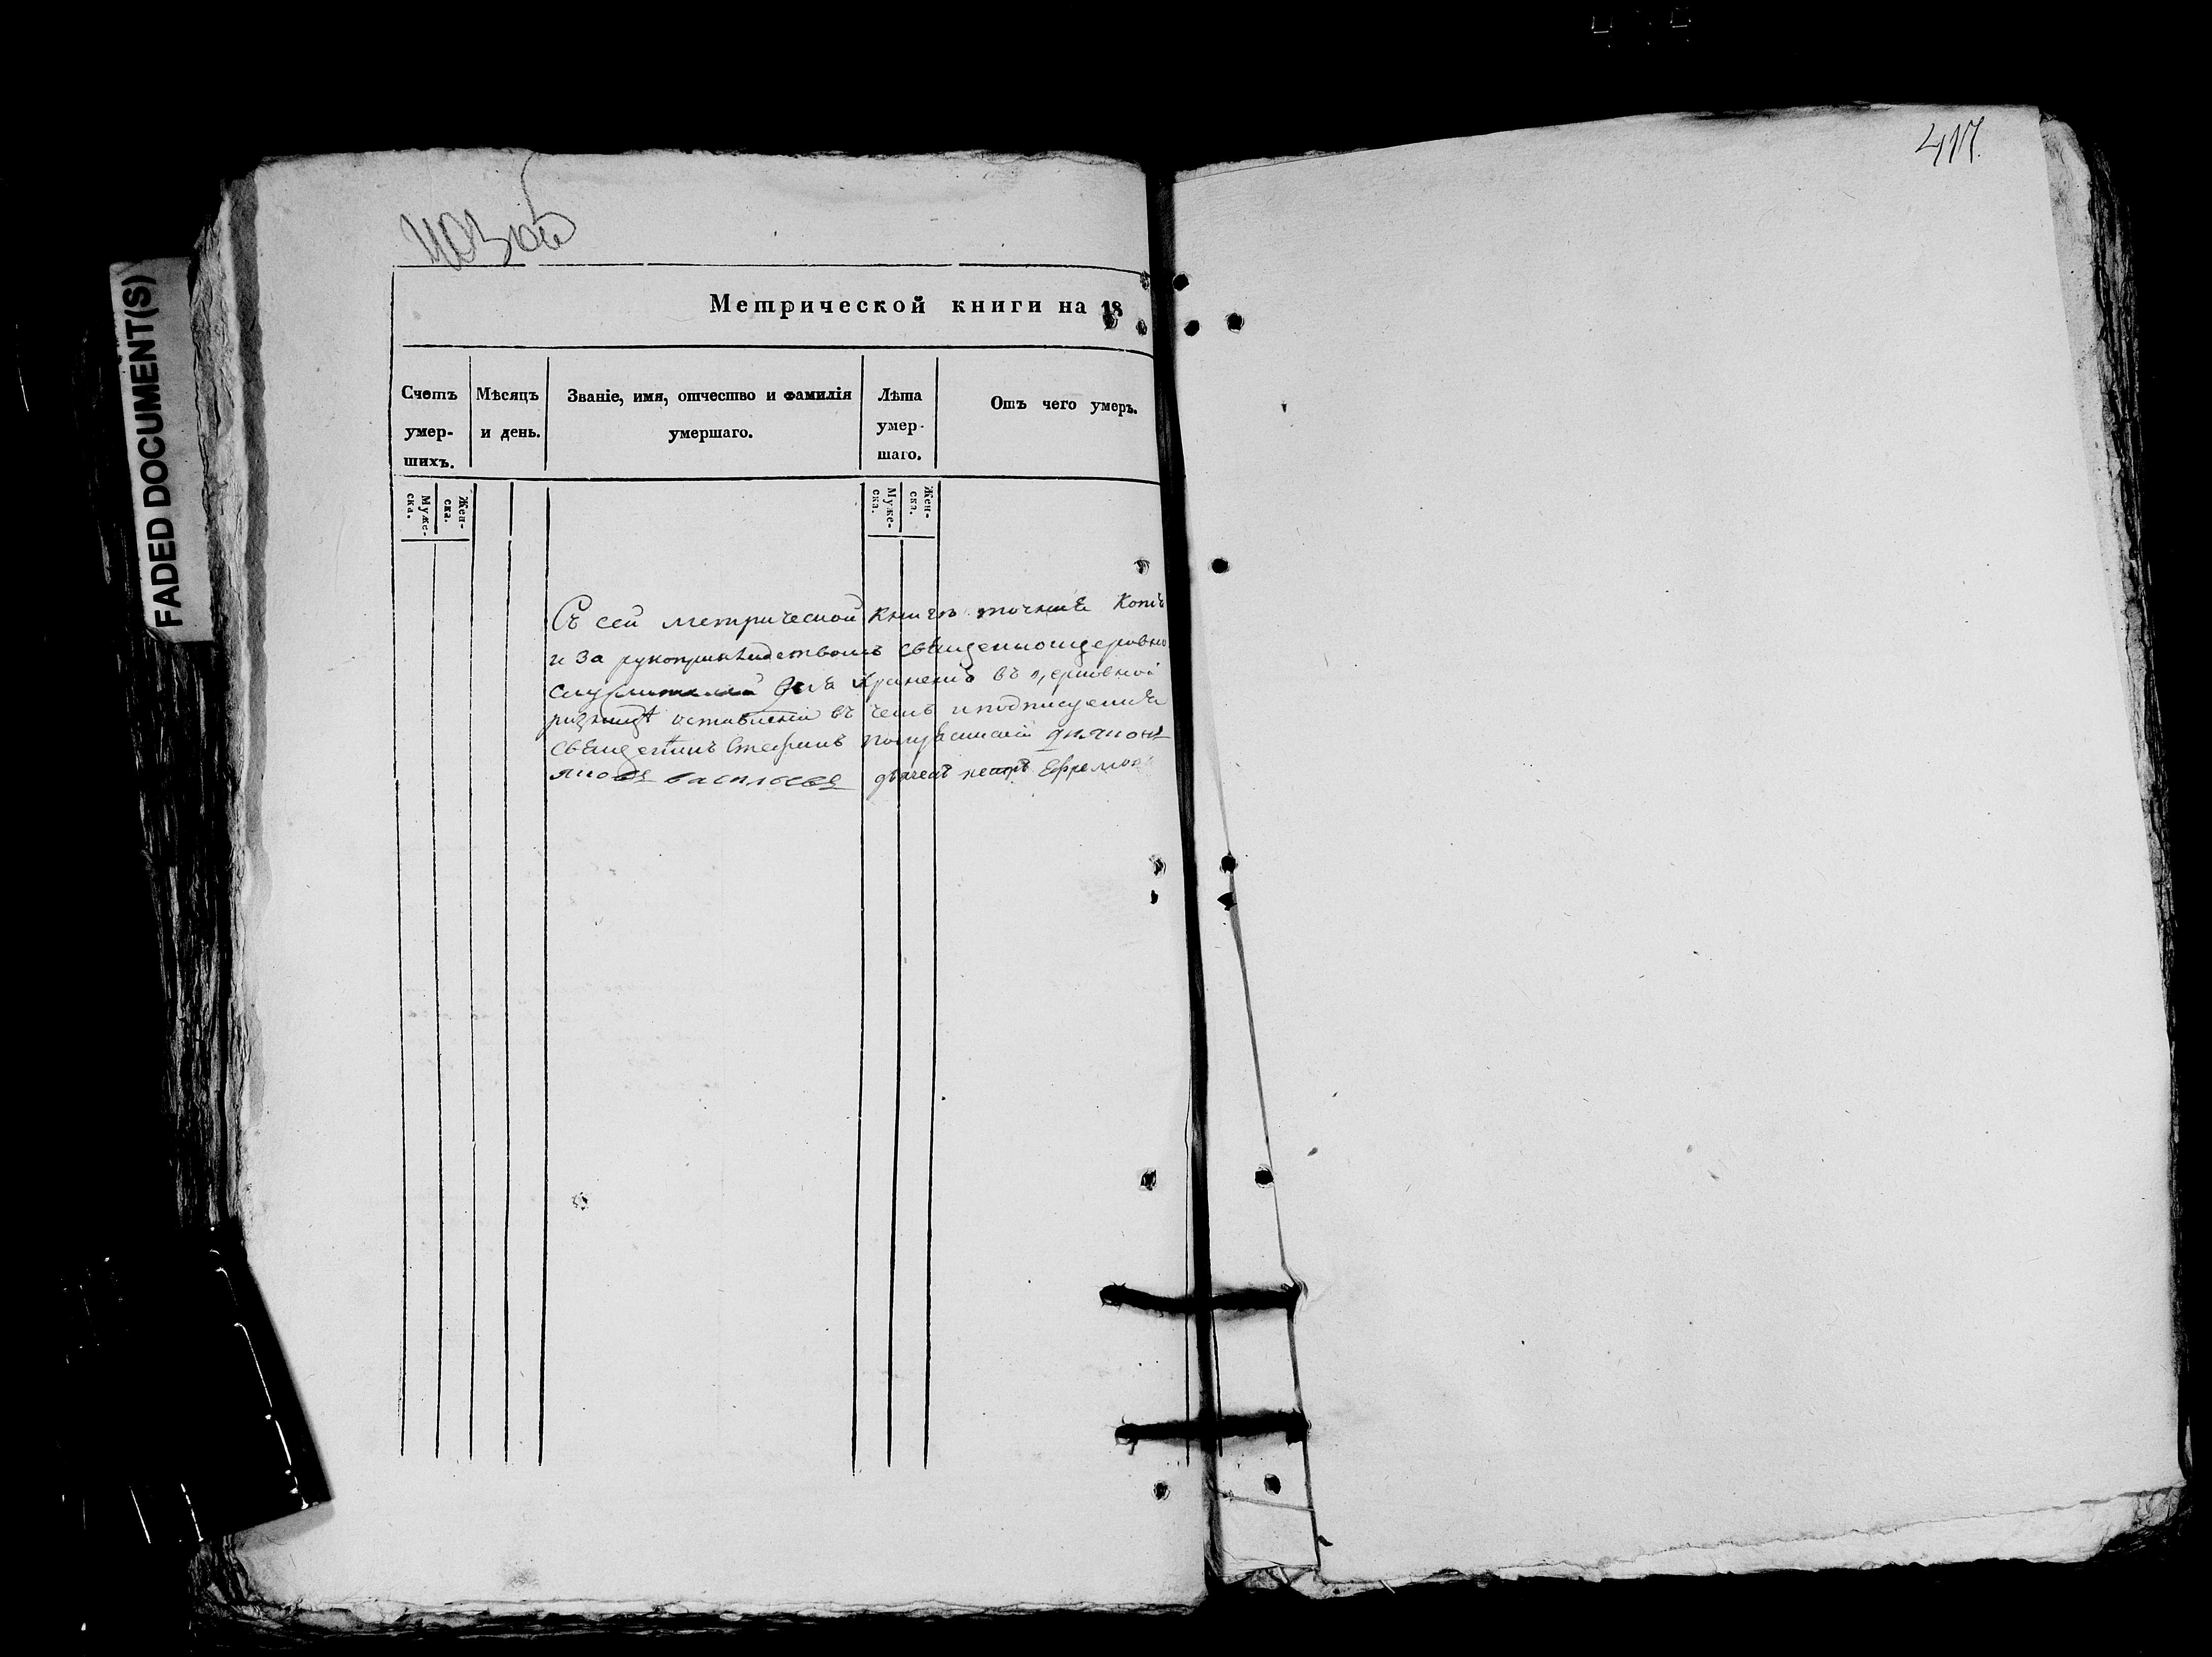 FADED DOCUMENT(S)
417.
Метрической книги на 18
Счетъ умер- шихъ.
Мѣсяцъ и день.
Званіе, имя, отчество и фамилія умершаго.
Лѣта умер- шаго.
Отъ чего умеръ.
Муже- ска.
Жен- ска.
Муже- ска.
Жен- ска.
Съ сей метрической книги точная Копія
и за рукоприкладствомъ священноцерковно
служителей для храненія въ церковной
ризницѣ оставлена въ чемъ и подписуемся
священникъ Стефанъ
дьячекъ Ефремовъ